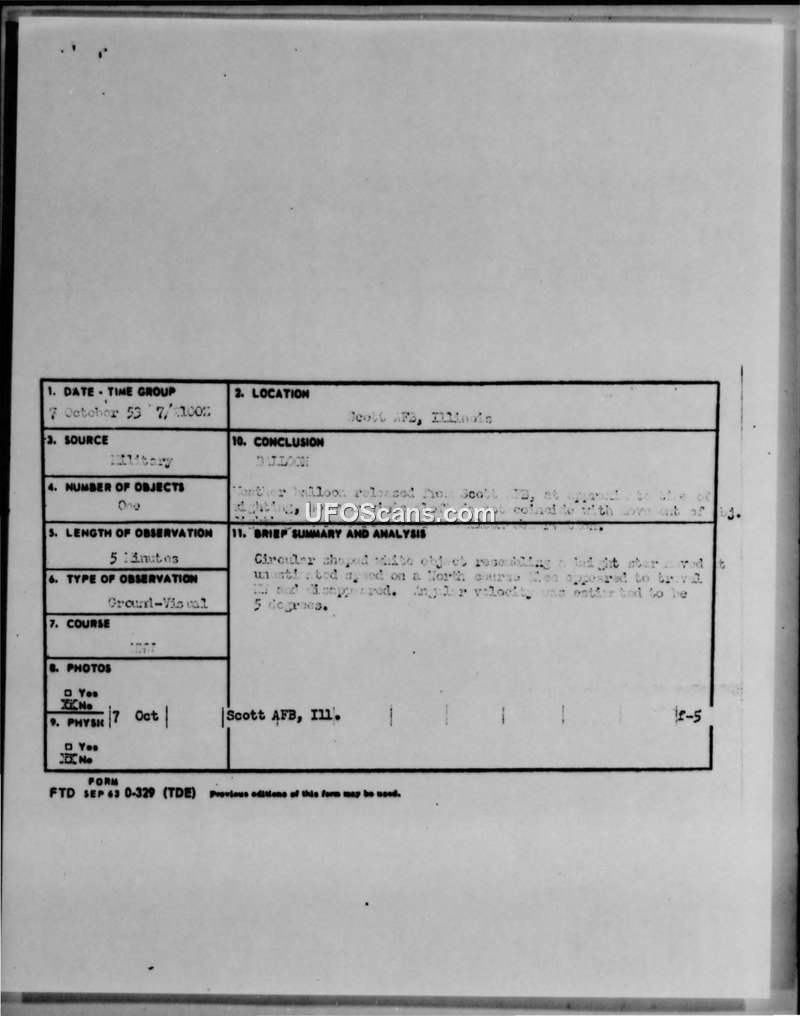 1. DATE - TIME GROUP
7 October 53
2. LOCATION
Scott AFB, Illinois
3. SOURCE
Military
10. CONCLUSION
BALLOON
4. NUMBER OF OBJECTS
One
Weather balloon released from Scott AFB, at
coincide with
UFOScans.com
5. LENGTH OF OBSERVATION
5 Minutes
11. BRIEF SUMMARY AND ANALYSIS
Circular shaped white object resembling a bright star moved at
6. TYPE OF OBSERVATION
Ground-Visual
speed on a North course then appeared to travel
and disappeared. Angular velocity was estimated to be
5 degrees.
7. COURSE
8. PHOTOS
□ Yes
XX No
9. PHYSI
7 Oct Scott AFB, Ill. f-5
□ Yes
XX No
FORM
FTD SEP 63 0-329 (TDE) Previous editions of this form may be used.